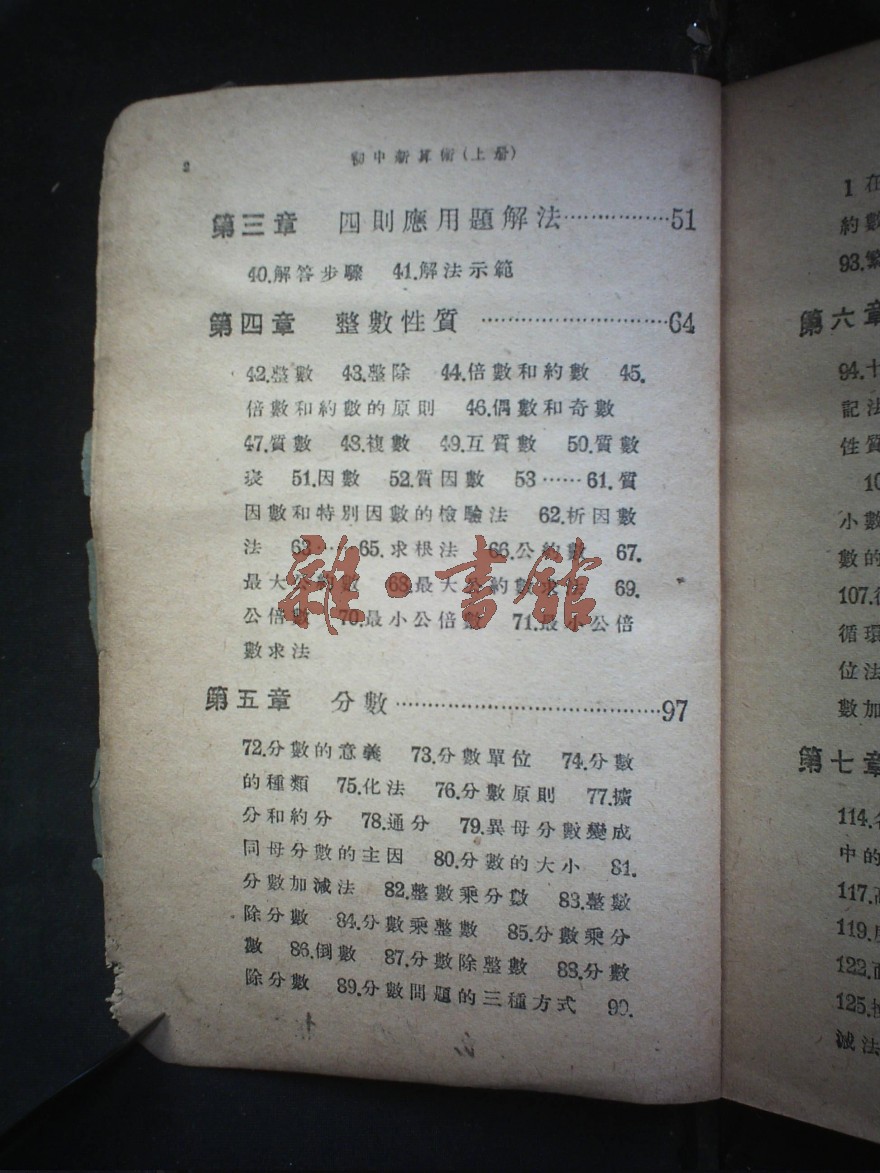 2
初中新算術(上册)
第三章 四則應用題解法………………51
40.解答步驟 41.解法示範
第四章 整數性質 …………………………64
42.整數 43.整除 44.倍數和約數 45.
倍數和約數的原則 46.偶數和奇數
47.質數 48.複數 49.互質數 50.質數
表 51.因數 52.質因數 53……61.質
因數和特別因數的檢驗法 62.析因數
法 63……65.求根法 66.公約數 67.
最大公約數 68.最大公約數求法 69.
公倍數 70.最小公倍數 71.最小公倍
數求法
第五章 分數…………………………………97
72.分數的意義 73.分數單位 74.分數
的種類 75.化法 76.分數原則 77.擴
分和約分 78.通分 79.異母分數變成
同母分數的主因 80.分數的大小 81.
分數加減法 82.整數乘分數 83.整數
除分數 84.分數乘整數 85.分數乘分
數 86.倒數 87.分數除整數 88.分數
除分數 89.分數問題的三種方式 90.
雜·書館
1在
約數
93.繁
第六章
94.十
記法
性質
10
小數
數的
107.循
循環
位法
數加
第七章
114.名
中的
117.
119.
122.面
125.
減法